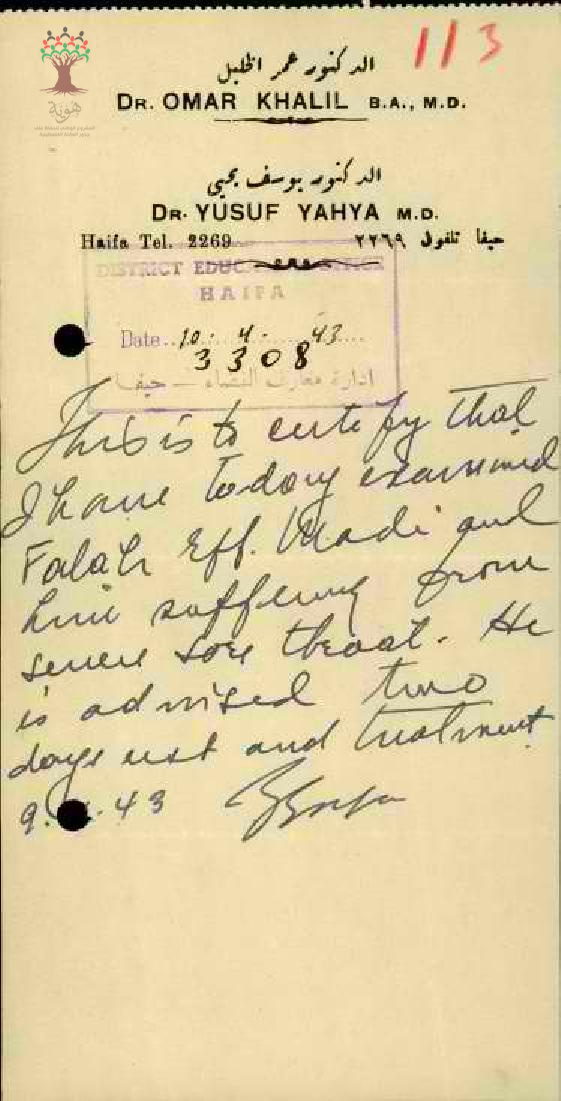 113
الدكتور عمر الخليل
DR. OMAR KHALIL B.A., M.D.
الدكتور يوسف يحيى
DR. YUSUF YAHYA M.D.
Haifa Tel. 2269 حيفا تلفون ٢٢٦٩
DISTRICT EDUCATION OFFICE
HAIFA
Date 10. 4. 43
3308
ادارة معارف اللواء – حيفا
This is to certify that
I have today examined
Falah Eff. Madi and
him suffering from
severe sore throat. He
is advised two
days rest and treatment
9. 43
هوية